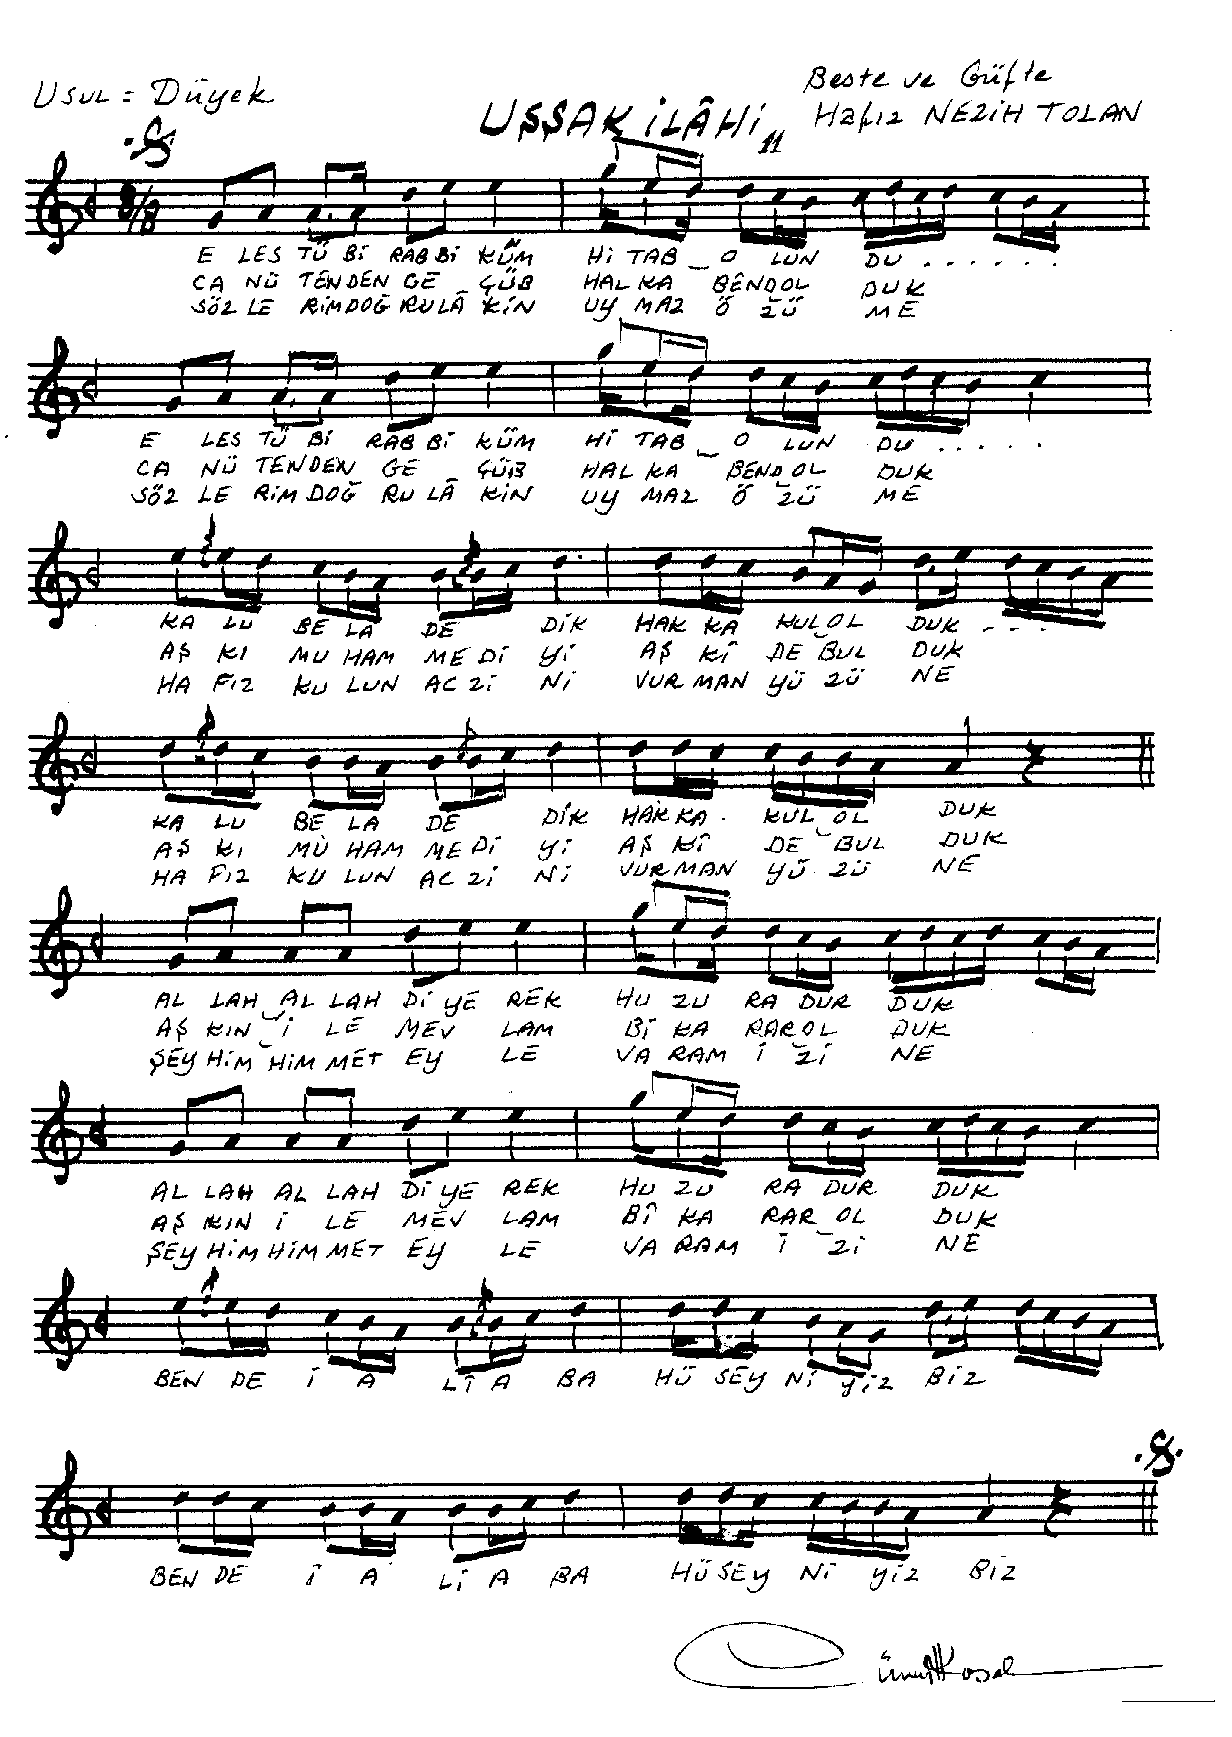 Usul = Düyek
Beste ve Güfte
UŞŞAK İLÂHİ
Hafız NEZİH TOLAN
11
8/8
E LES TÜ Bİ RAB Bİ KÜM Hİ TAB _ O LUN DU . . . . . .
CA NÜ TENDEN GE _ ÇÜB HAL KA BENDOL DUK
SÖZ LE RİMDOĞ RULÂ KİN UY MAZ Ö ZÜ ME
E LES TÜ Bİ RAB Bİ KÜM Hİ TAB _ O LUN DU . . . . .
CA NÜ TENDEN GE _ ÇÜB HAL KA BENDOL DUK
SÖZ LE RİM DOĞ RU LÂ KİN UY MAZ Ö ZÜ ME
KA LU BE LA DE DİK HAK KA KUL OL DUK . . . .
AŞ KI MU HAM ME Dİ Yİ AŞ KÎ DE BUL DUK
HA FIZ KU LUN AC Zİ Nİ VUR MAN YÜ ZÜ NE
KA LU BE LA DE DİK HAK KA . KUL OL DUK
AŞ KI MU HAM ME Dİ Yİ AŞ KÎ DE BUL DUK
HA FIZ KU LUN AC Zİ Nİ VUR MAN YÜ ZÜ NE
AL LAH AL LAH Dİ YE REK HU ZU RA DUR DUK
AŞ KIN İ LE MEV LAM Bİ KA RAROL DUK
ŞEY HİM HİM MET EY LE VA RAM İ Zİ NE
AL LAH AL LAH Dİ YE REK HU ZU RA DUR DUK
AŞ KIN İ LE MEV LAM Bİ KA RAR OL DUK
ŞEY HİM HİM MET EY LE VA RAM İ Zİ NE
BEN DE İ A Lİ A BA HÜ SEY Nİ YİZ BİZ
BEN DE İ A Lİ A BA HÜ SEY Nİ YİZ BİZ